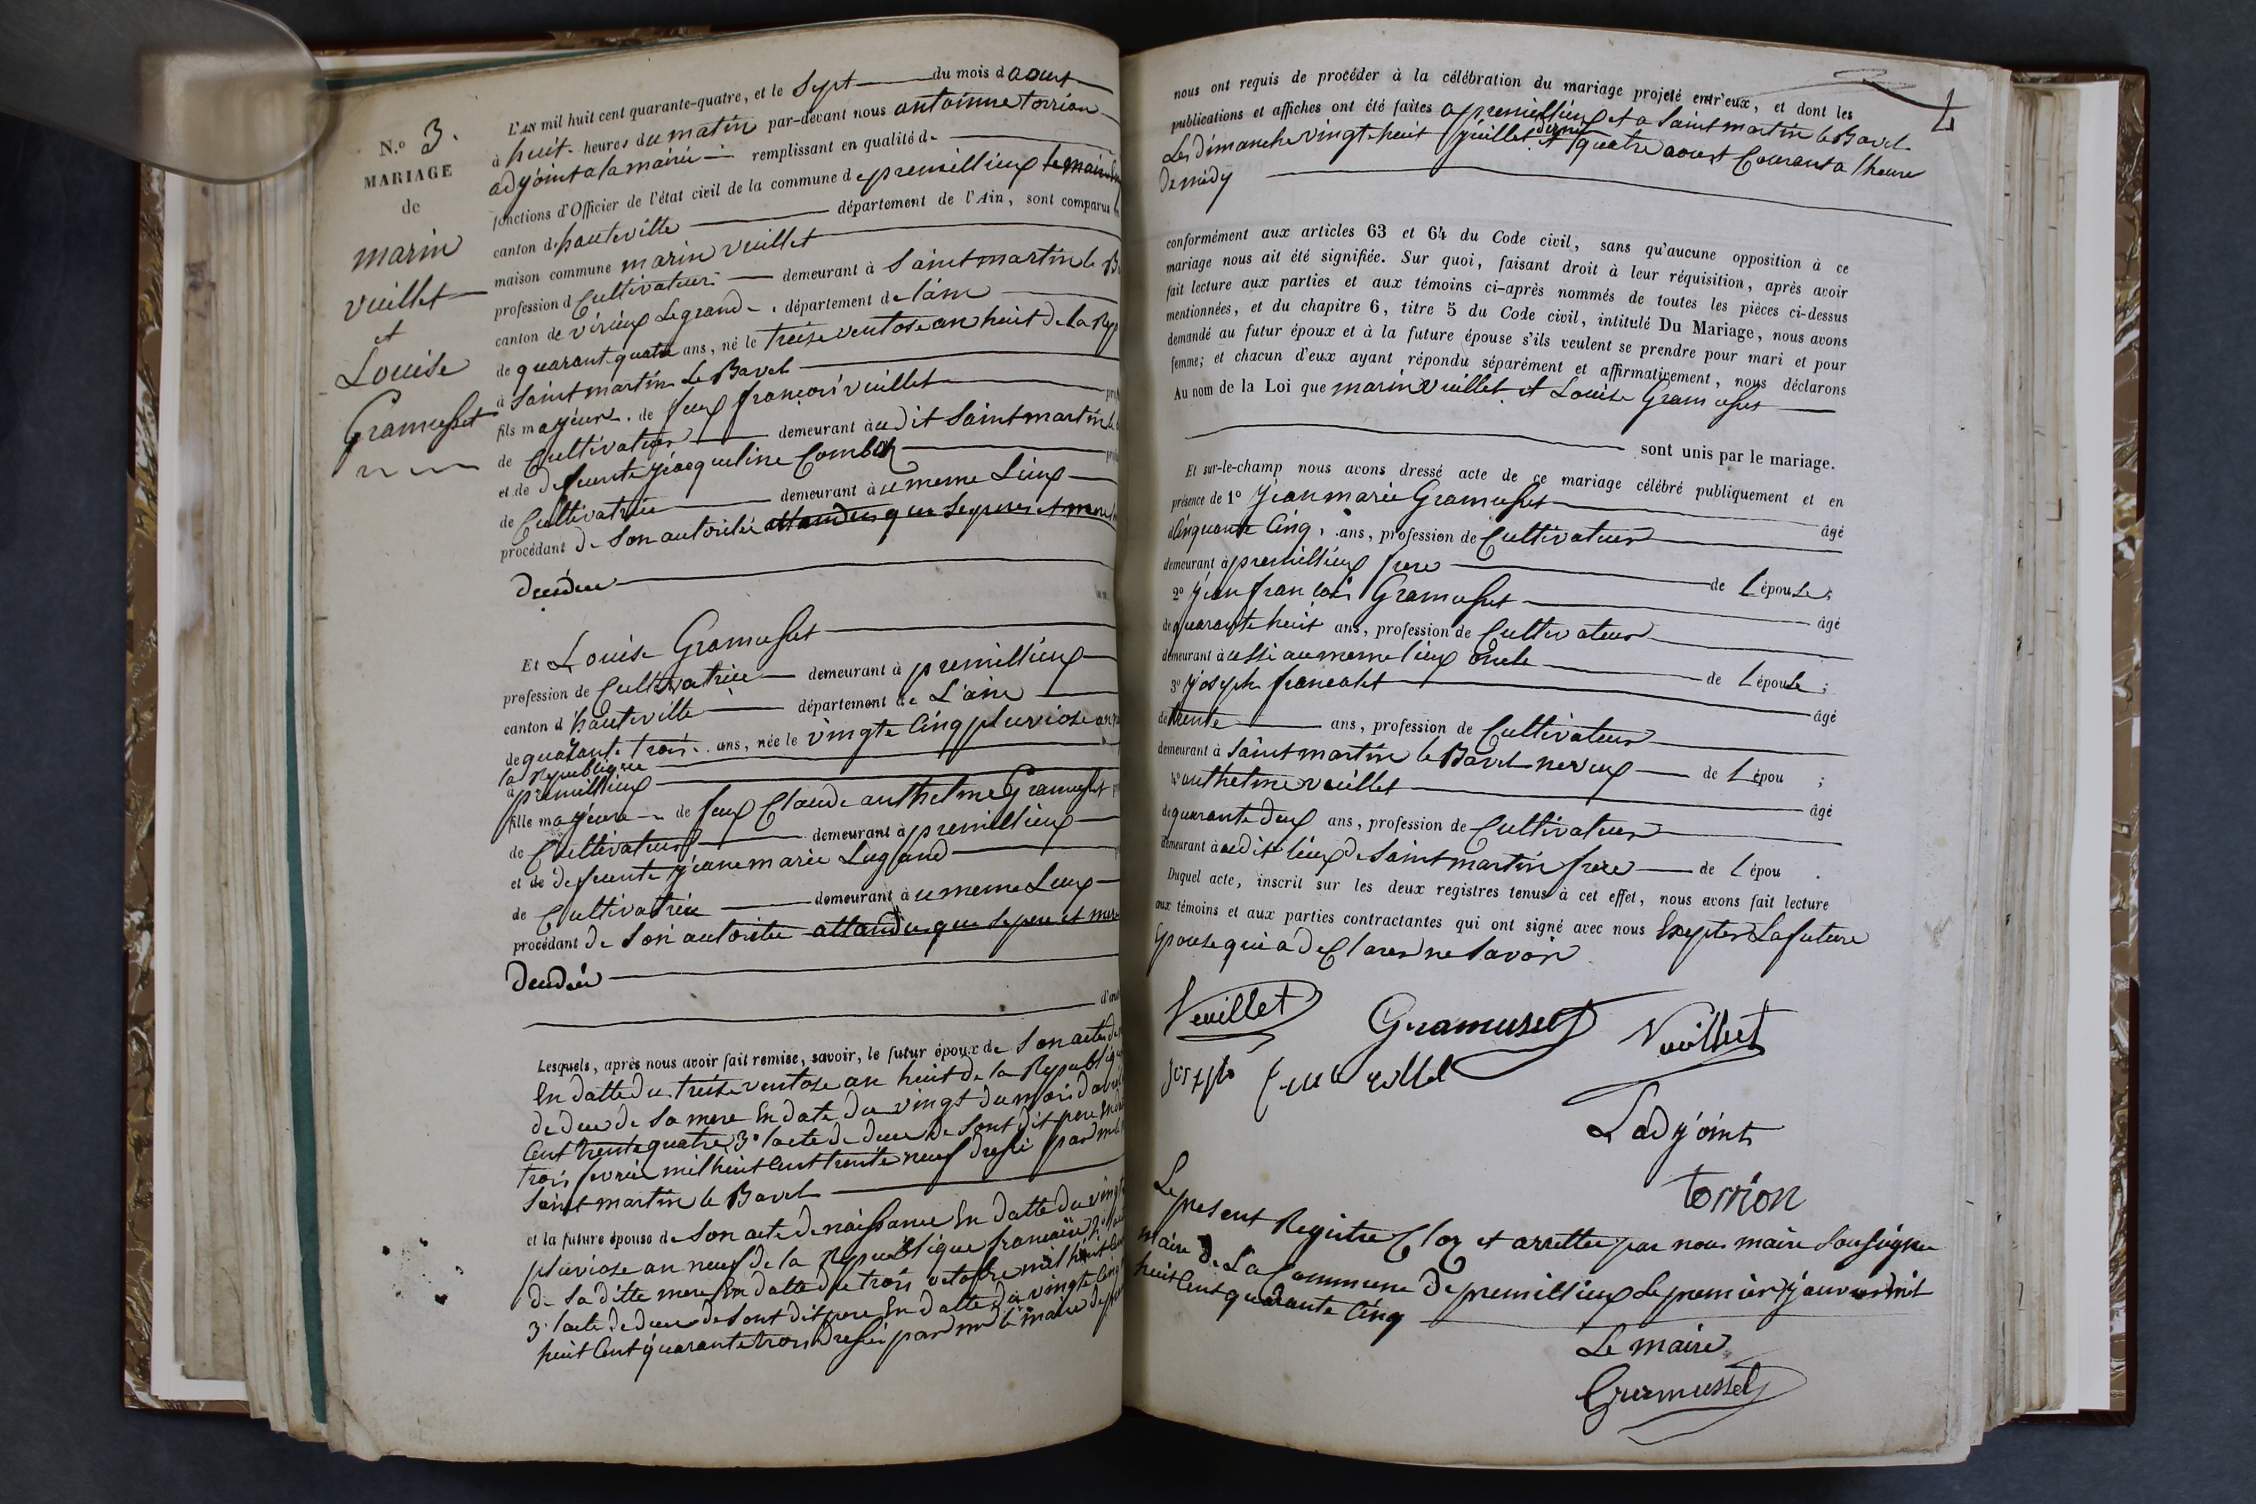 N.o 3.
MARIAGE
de
marin
vuillet
et
Louise
Gramusset
L'AN mil huit cent quarante-quatre, et le Sept du mois d aoust
à huit heures du matin par-devant nous antoinne torrion
adyoint a la mairie remplissant en qualité de
fonctions d'Officier de l'état civil de la commune de premillieux le maire
canton d hauteville département de l'Ain, sont comparus
maison commune marin vuillet
profession d Cultivateur demeurant à Saint martin le
canton de virieux Le grand , département de l'ain
de quarant quatre ans, né le treise ventose an huit de la Rep
à Saint martin Le Bavel
fils mayeur de feux françois vuillet
de Cultivateur demeurant à u dit Saint martin le
et de defuente jacqueline Combet
de Cultivatrice demeurant à u meme Lieux
procédant de Son autoritéé attandus que Se peres et meres
deusdee
Et Louise Gramusset
profession de Cultivatrice demeurant à premillieux
canton d'hauteville département de L'ain
de quarante trois ans, née le vingte Cinq pluviose an
la Republique
à premillieux
fille mayeure de feux Claude anthelme Gramusset
de Cultivateur demeurant à premillieux
et de defuente jeane marie Lugand
de Cultivatrice demeurant à u meme Leux
procédant de Son autoritee attandus que Se pere et mere
deusdée
Lesquels, après nous avoir fait remise, savoir, le futur époux de Son acte de
En datte du treise ventose an huit de la Republique
de dece de Sa mere En date du vingt du mois d avril
Cent trente quatre 3° lacte de dece de Sont dit pere En
trois fevrie mil huit Cent trente neuf dressé par
Saint martin le Bavel
et la future épouse de Son acte de naissance En datte du vingt
pluviose an neuf de la Republique francaise
de Sa ditte mere En datte du trois octobre mil huit
3° lacte de dece de Sont dit pere En datte du vingte Cinq
huit Cent quarante trois dressé par le maire de
4
nous ont requis de procéder à la célébration du mariage projeté entr'eux, et dont les
publications et affiches ont été faites a premillieux et a Saint martin le Bavel
Les dimanche vingte huit juillet dernie et quatre aoust Courant a lheure
de midy
conformément aux articles 63 et 64 du Code civil, sans qu'aucune opposition à ce
mariage nous ait été signifiée. Sur quoi, faisant droit à leur réquisition, après avoir
fait lecture aux parties et aux témoins ci-après nommés de toutes les pièces ci-dessus
mentionnées, et du chapitre 6, titre 5 du Code civil, intitulé Du Mariage, nous avons
demandé au futur époux et à la future épouse s'ils veulent se prendre pour mari et pour
femme; et chacun d'eux ayant répondu séparément et affirmativement, nous déclarons
Au nom de la Loi que marin vuillet et Louise Gramusset
sont unis par le mariage.
Et sur-le-champ nous avons dressé acte de ce mariage célébré publiquement et en
présence de 1° Jean marie Gramusset âgé
d Cinquante Cinq ans, profession de Cultivateur
demeurant à premillieux frere de L épouse;
2° jean francois Gramusset âgé
de quarante huit ans, profession de Cultivateur
demeurant à ussi au meme lieux oncle de L épouse;
3° joseph francolet âgé
de trente ans, profession de Cultivateur
demeurant à Saint martin le Bavel neveux de L épou ;
4° anthelme vuillet âgé
de quarante deux ans, profession de Cultivateur
demeurant à udit lieux de Saint martin frere de L épou .
Duquel acte, inscrit sur les deux registres tenus à cet effet, nous avons fait lecture
aux témoins et aux parties contractantes qui ont signé avec nous Exepter La future
Epouse qui a declarer ne Savoir
Veuillet Gramuset Vuillet
Joseph
Ladyoint
torrion
Le present Registre Cloz et arretter par nous maire Sousigner
maire de La Commune de premillieux Le premier janvier mil
huit Cent quarante Cinq
Le maire
Gramusset